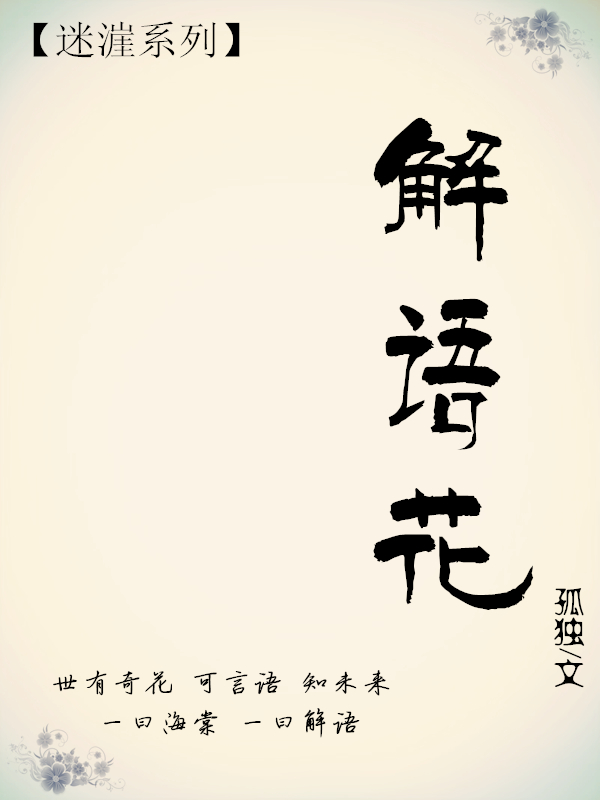 【迷漄系列】
解语花
孤独/文
世有奇花 可言语 知未来
一曰海棠 一曰解语